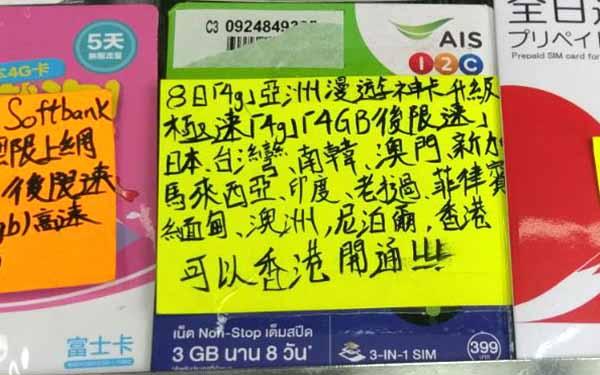 C3 0924849
AIS
1 2 C
8日「4g」亞洲漫遊神卡升級
極速「4g」「4GB後限速」
日本、台灣、南韓、澳門、新加
馬來西亞、印度、老撾、菲律賓
緬甸、澳洲,尼泊爾,香港
可以香港開通!!!
เน็ต Non-Stop เต็มสปีด
3 GB นาน 8 วัน*
3-IN-1 SIM
399
บาท
5天
4G卡
Softbank
限上網
後限速
gb)高速
富士卡
全日
プリペイ
Prepaid SIM card for